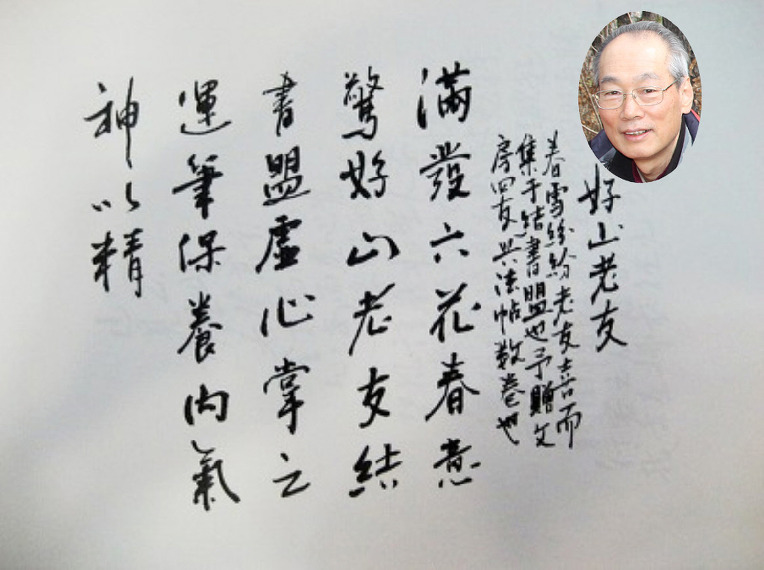 好山老友
春雪紛紛老友喜而
集于結書盟也予贈文
房四友共法帖數卷也
滿發六花春意
驚好山老友結
書盟虛心掌之
運筆保養內氣
神以精